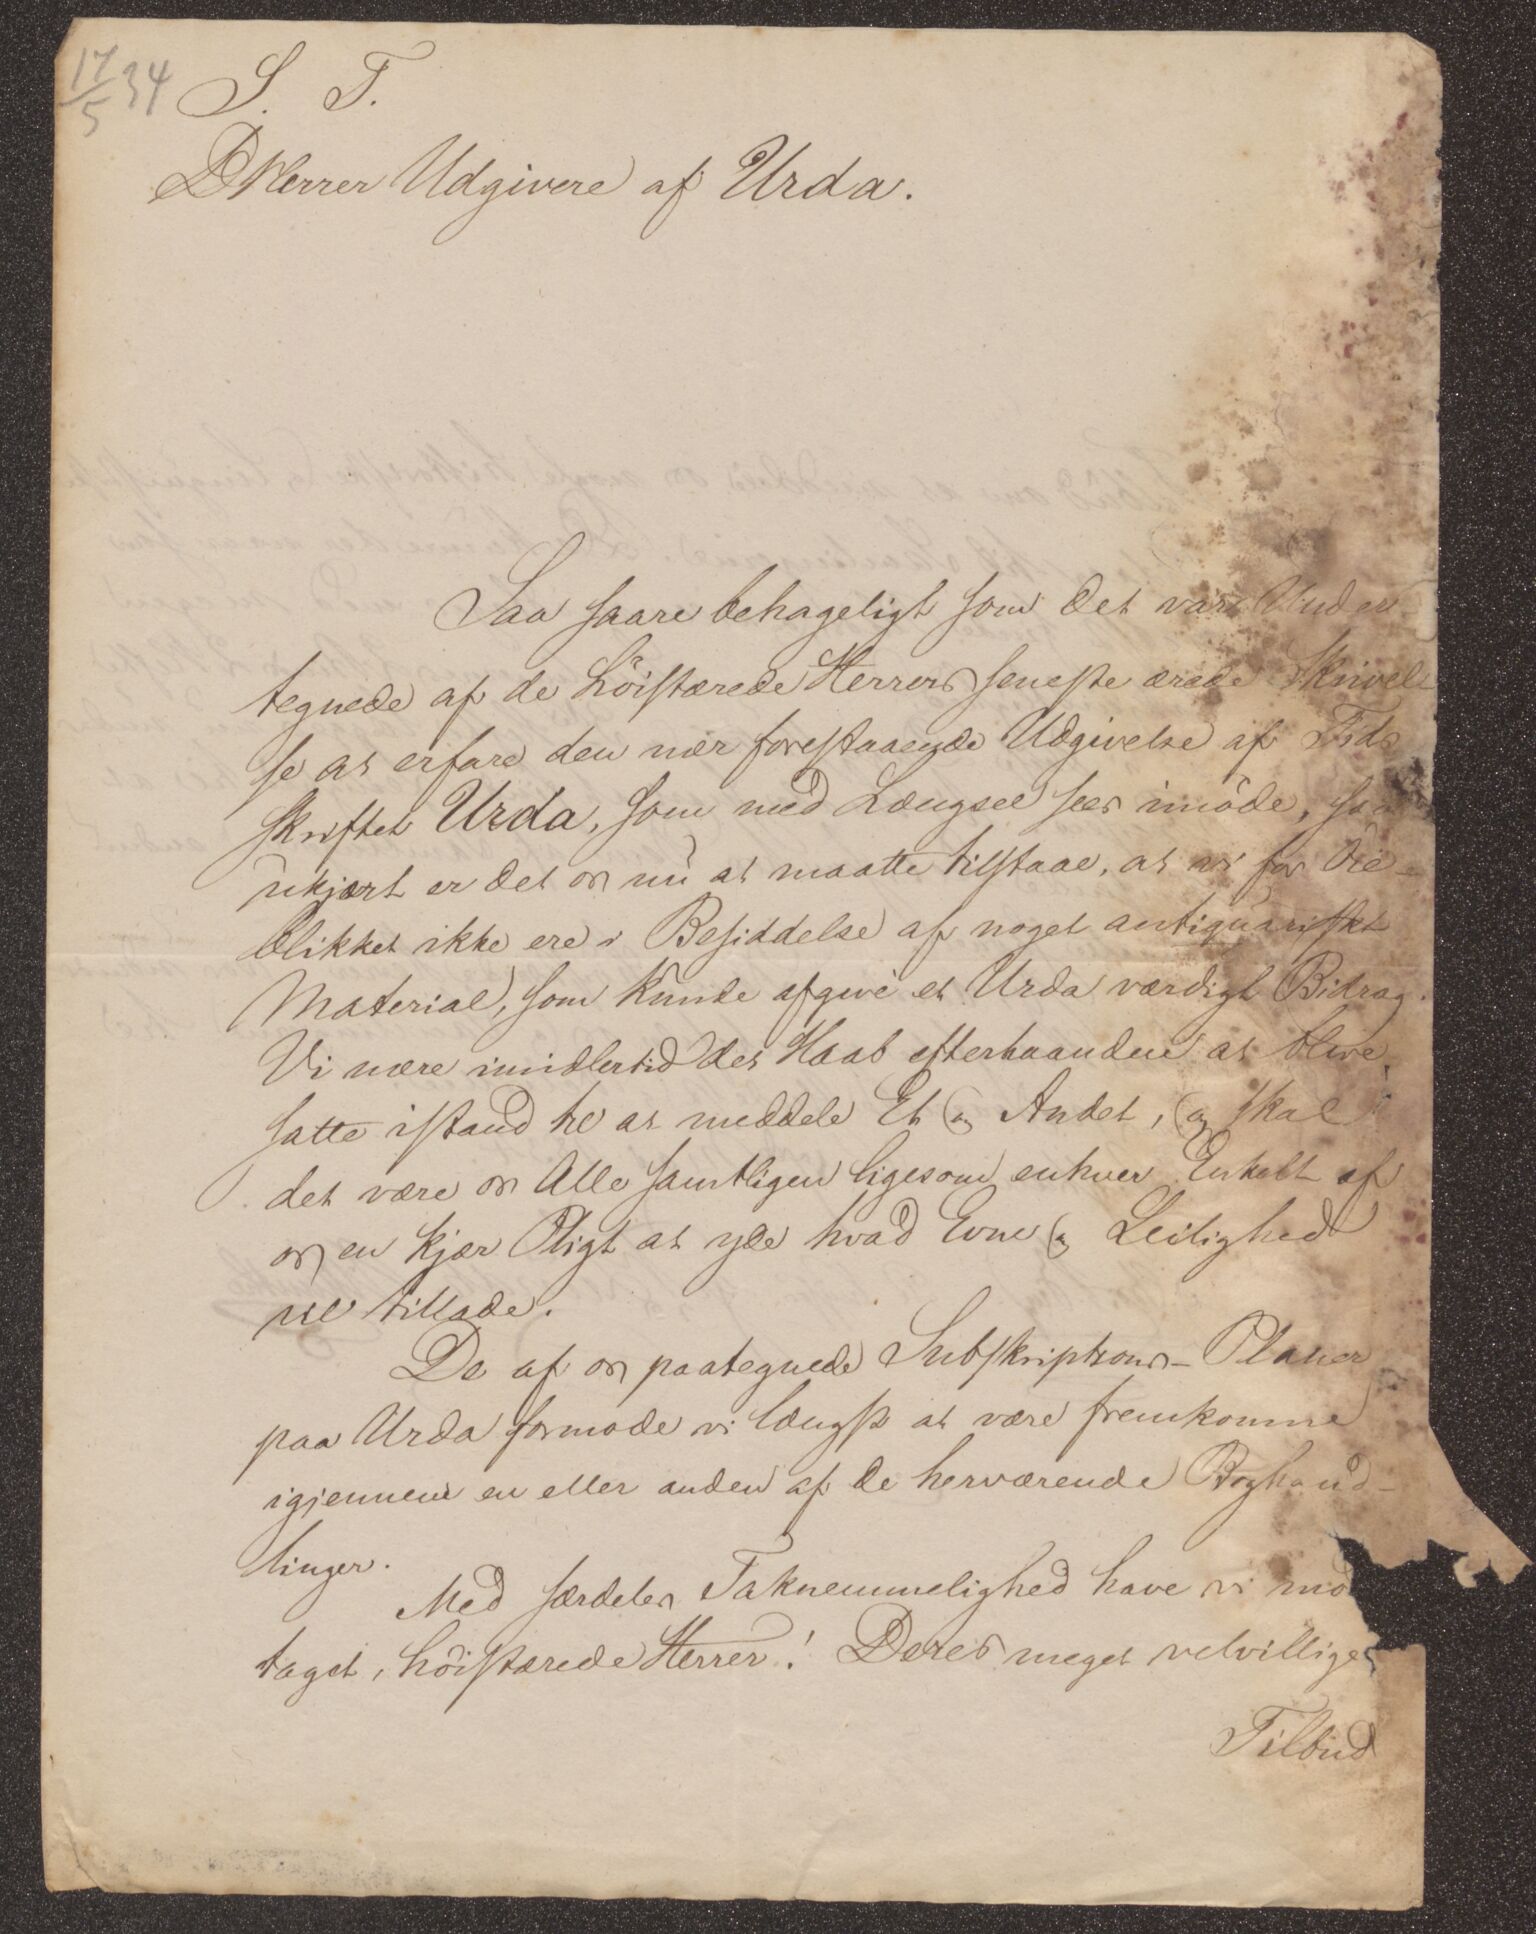 17/5 34
S. T.
D Herrer Udgivere af Urda.
Saa saare behageligt som det var Under
tegnede af de Höistærede Herrers seneste ærede Skrivel-
se at erfare den nær forestaaende Udgivelse af Tids
skriftet Urda, som med Længsel sees imöde, saa
ukjært er det os nu at maatte tilstaae, at vi for Öie-
blikket ikke ere i Besiddelse af noget antiquariskt
Material, som kunde afgive et Urda værdigt Bidrag.
Vi nære imidlertid det Haab efterhaanden at blive
satte istand til at meddele Et og Andet, og skal
det være os Alle samtligen ligesom enhver Enkelt af
os en kjær Pligt at yde hvad Evne og Leilighed
vil tillade.
De af os paategnede Subskriptions-Planer
paa Urda formode vi længst at være fremkomne
igjennem en eller anden af de herværende Boghand-
linger.
Med særdeles Taknemmelighed have vi mod
taget, höistærede Herrer! Deres meget velvillige
Tilbud